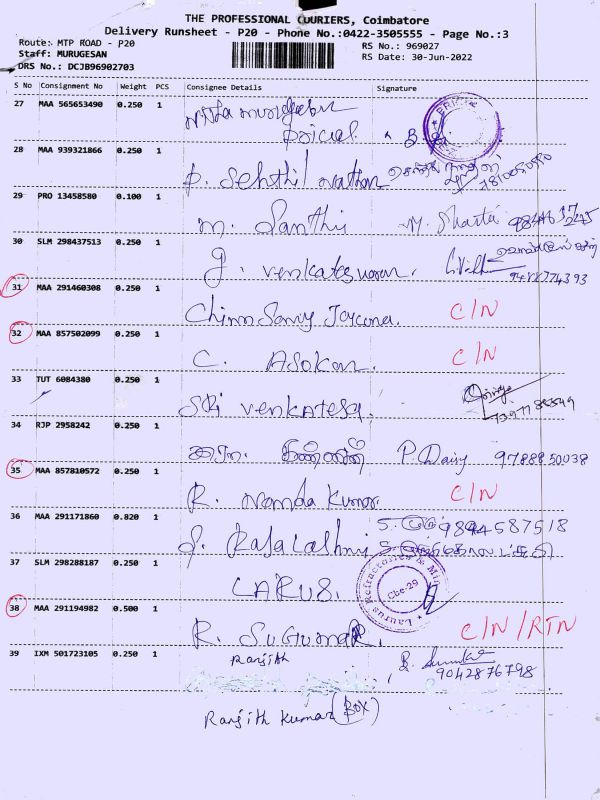 THE PROFESSIONAL COURIERS, Coimbatore
Delivery Runsheet - P20 - Phone No.:0422-3505555 - Page No.:3
Route: MTP ROAD - P20
RS No.: 969027
Staff: MURUGESAN
RS Date: 30-Jun-2022
DRS No.: DCJB96902703
S No Consignment No Weight PCS Consignee Details Signature
27 MAA 565653490 0.250 1
28 MAA 939321866 0.250 1 P. Senthil nathan
29 PRO 13458580 0.100 1 M. Santhi
30 SLM 298437513 0.250 1 G. Venkateswaran. 9488774393
31 MAA 291460308 0.250 1 Chinn Samy C/N
32 MAA 857502099 0.250 1 C. Asokan. C/N
33 TUT 6084380 0.250 1 Sri Venkatesa.
34 RJP 2958242 0.250 1 P. Dairy 9788850038
35 MAA 857810572 0.250 1 R. Nanda Kumar. C/N
36 MAA 291171860 0.820 1 9894587518
37 SLM 298288187 0.250 1 LARUS. Laurus Refractories & Cbe-29
38 MAA 291194982 0.500 1 R. Sugumar. C/N/RTN
39 IXM 501723105 0.250 1 Ranjith 9042876798
Ranjith Kumar (Box)